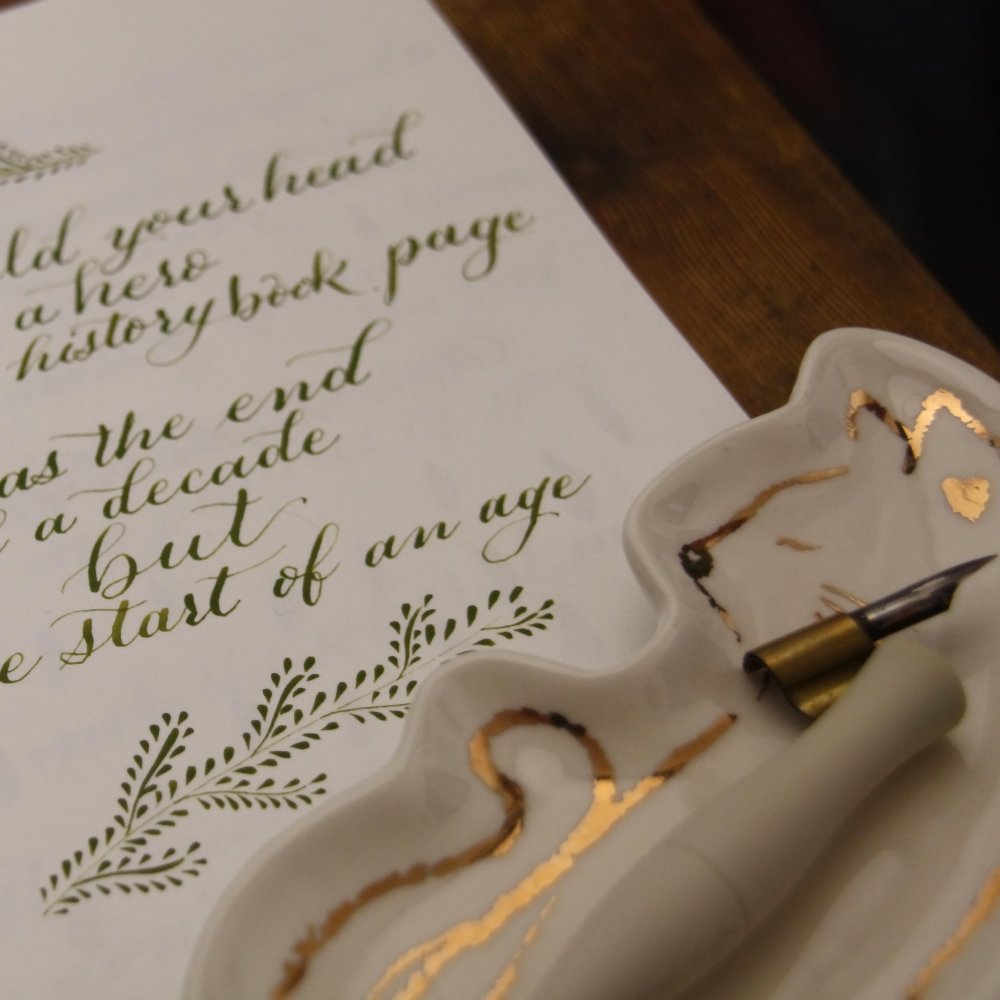 your head
a hero
history book page
as the end
a decade
but
e start of an age